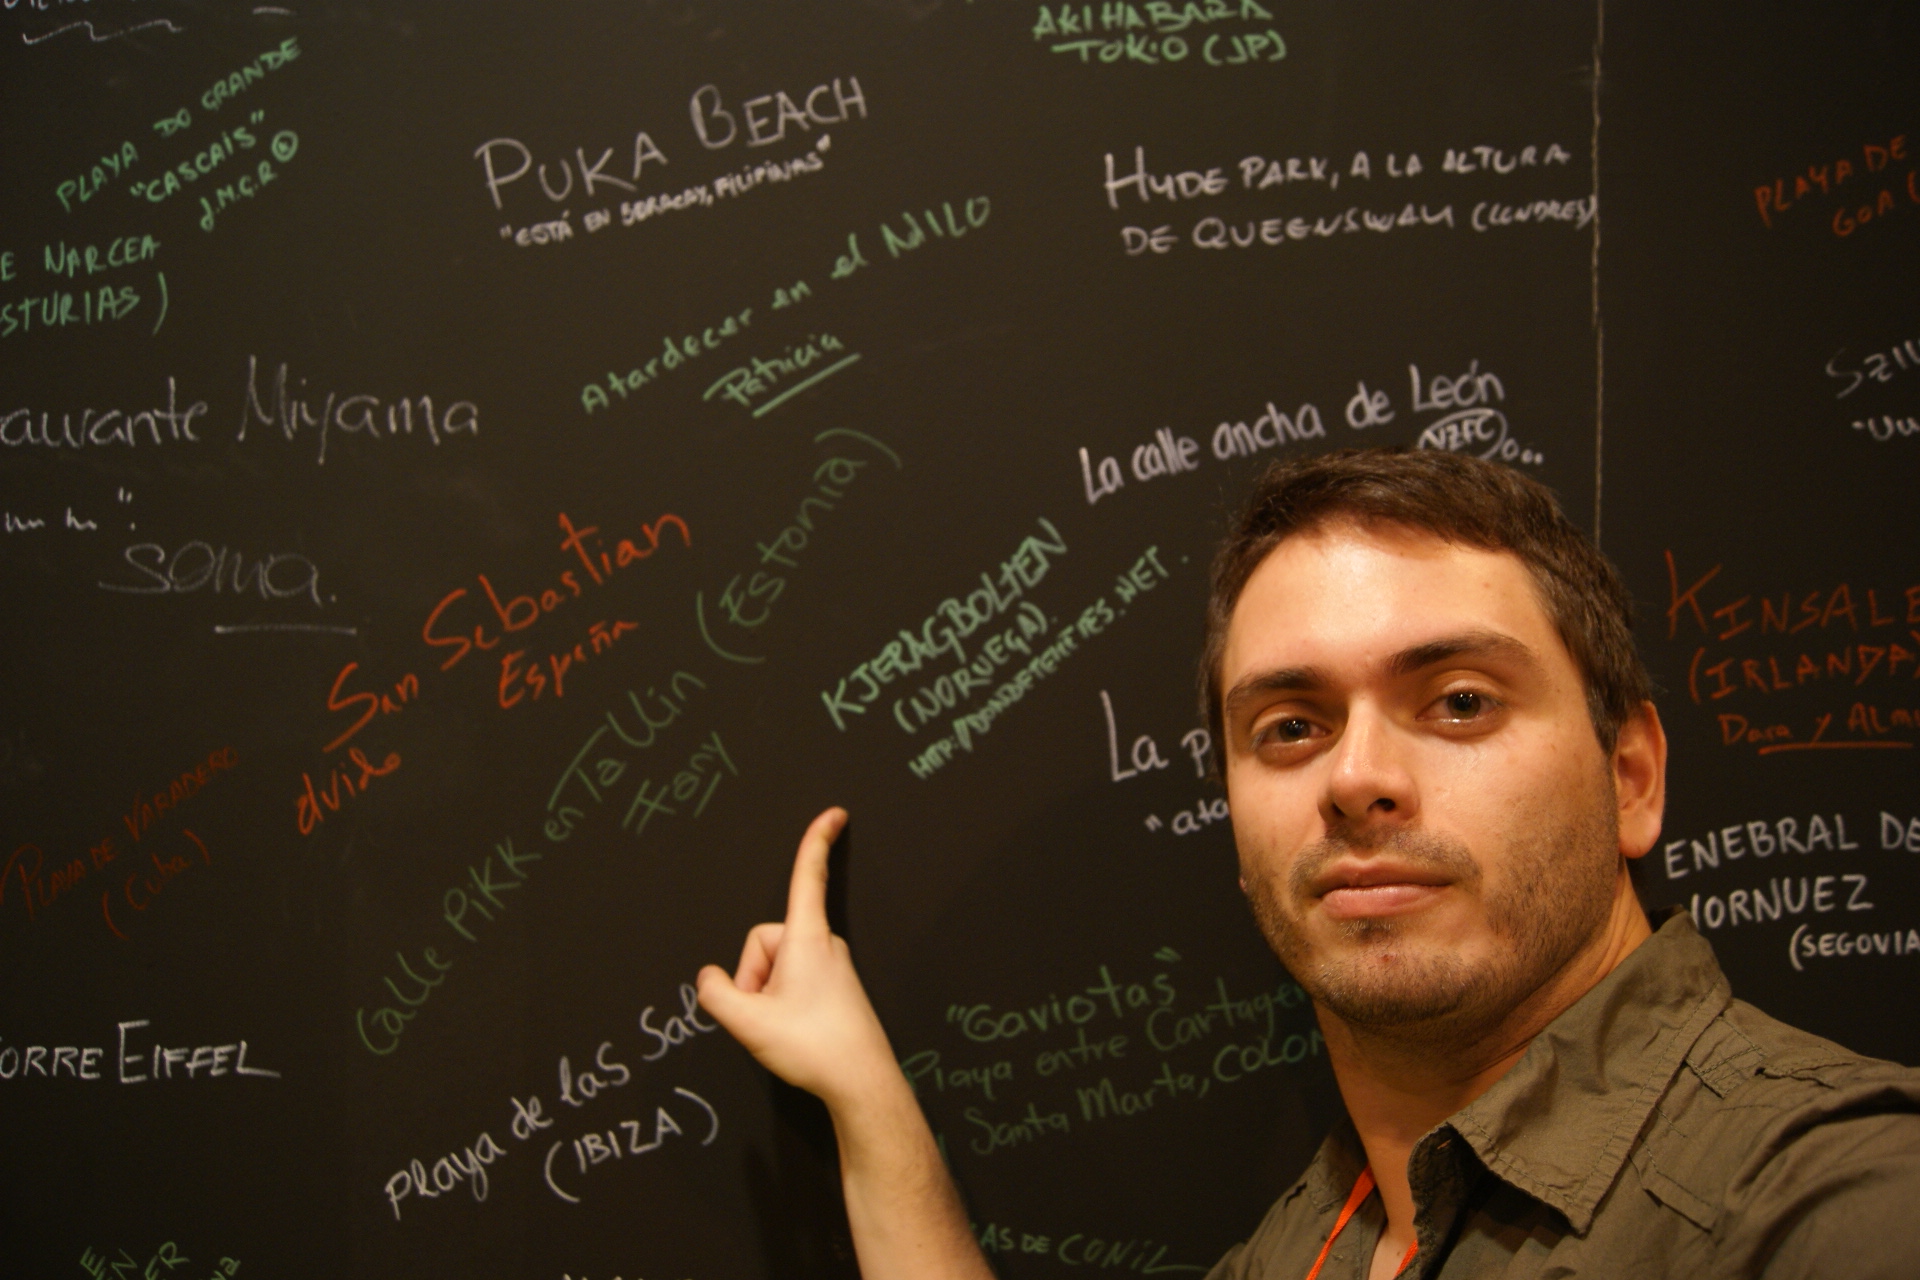 AKIHABARA
TOKIO (JP)
PLAYA DO GRANDE
"CASCAIS"
J.M.G.R
PUKA BEACH
"ESTÁ EN BORACAY, FILIPINAS"
HYDE PARK, A LA ALTURA
DE QUEENSWAY (LONDRES)
PLAYA DE
GOA (
E NARCEA
STURIAS)
Atardecer en el NILO
Patricia
aurante Miyama
soma.
La calle ancha de León
San Sebastian
España
dvido
Calle PiKK en Tallin (Estonia)
Xony
KJERAGBOLTEN
(NORUEGA).
HTTP://DONDETEMETES.NET.
La P
"ata
KINSALE
(IRLANDA)
Dara y Alm
PLAYA DE VARADERO
(Cuba)
ENEBRAL DE
HORNUEZ
(SEGOVIA
ORRE EIFFEL
playa de las Sal
(IBIZA)
"Gaviotas"
Playa entre Cartagen
Santa Marta, COLOM
AS DE CONIL